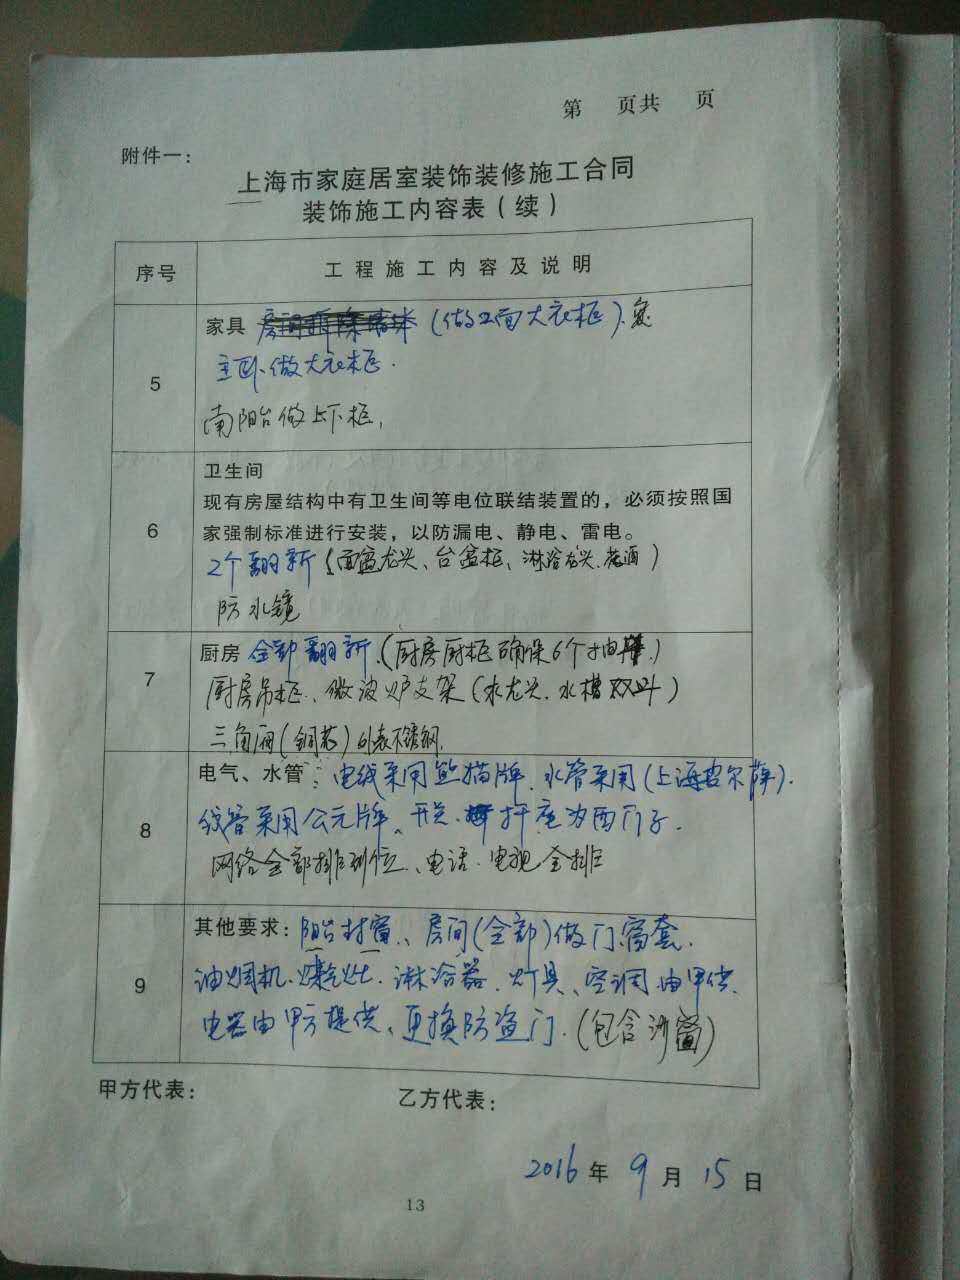 第 页共 页
附件一：
上海市家庭居室装饰装修施工合同
装饰施工内容表（续）
序号 工程施工内容及说明
5
家具 (做2面大衣柜).
主卧做大衣柜.
南阳台做上下柜,
6
卫生间
现有房屋结构中有卫生间等电位联结装置的，必须按照国
家强制标准进行安装，以防漏电、静电、雷电。
2个翻新 (面盆龙头、台盆柜、淋浴龙头.花洒)
防水镜
7
厨房 全部翻新.(厨房厨柜确保6个抽)
厨房吊柜、微波炉支架 (水龙头.水槽双)
三角阀(铜芯)外表不锈钢.
8
电气、水管：电线采用熊猫牌.水管采用(上海皮尔萨).
线管采用公元牌、开关.插座为西门子.
网络全部排到位、电话.电视全排
9
其他要求：阳台封窗、房间(全部)做门.窗套.
油烟机.燃气灶.淋浴器.灯具、空调.由甲供.
电器由甲方提供、更换防盗门.(包含沙窗)
甲方代表：
乙方代表：
2016年9月15日
13